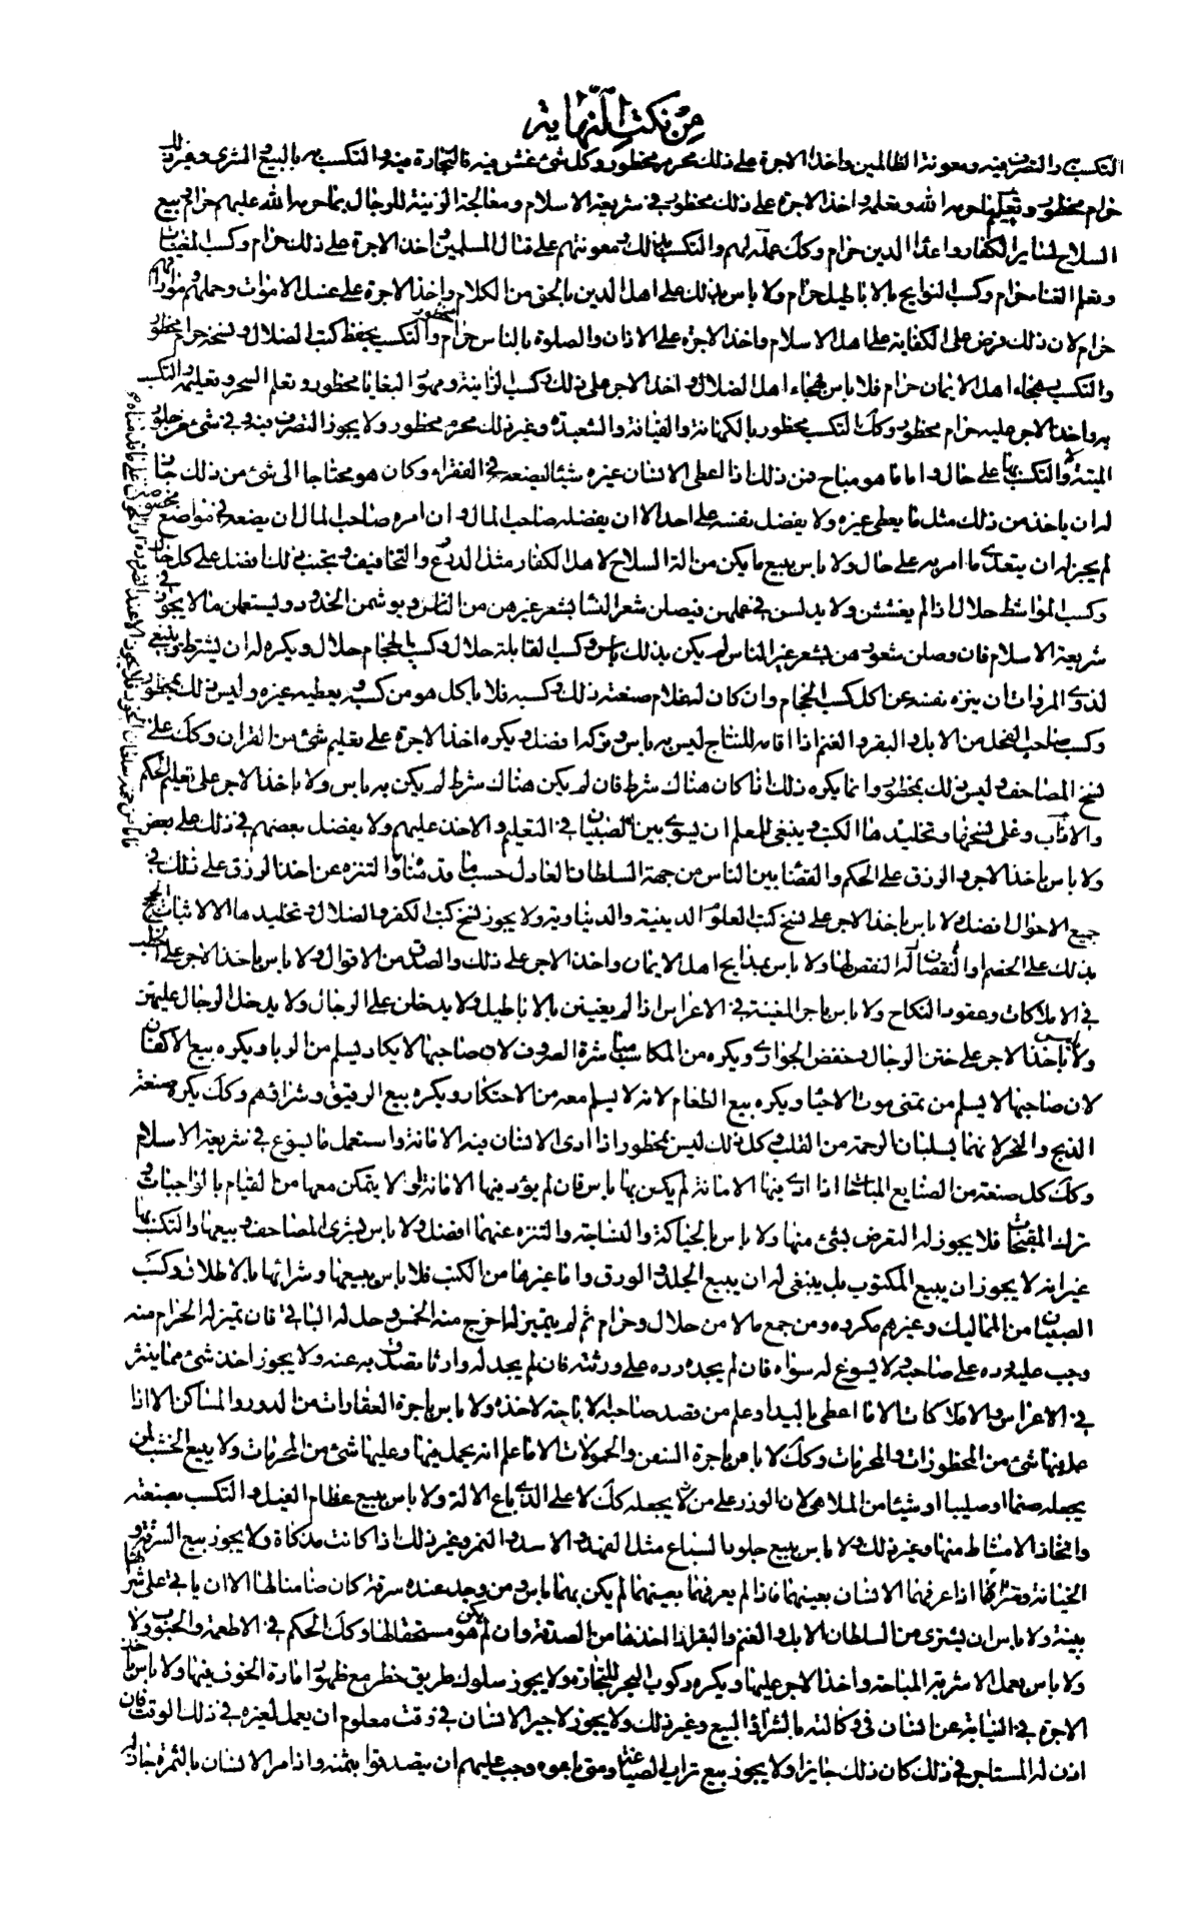 من نكت النهاية
التكسب به والتصرف فيه ومعونة الظالمين واخذ الاجرة على ذلك محرم محظور وكل شئ غش فيه فالتجارة فيه والتكسب به بالبيع والشرى وغير ذلك
حرام محظور وتعليم ما حرمه الله وتعلمه واخذ الاجرة على ذلك محظور في شريعة الاسلام ومعالجة الزينة للرجال بما حرمه الله عليهم حرام وبيع
السلاح لسائر الكفار واعداء الدين حرام وكك عمله لهم والتكسب بذلك ومعونتهم على قتال المسلمين واخذ الاجرة على ذلك حرام وكسب المغنيات
وتعلم الغناء حرام وكسب النوايح بالاباطيل حرام ولا باس بذلك على اهل الدين بالحق من الكلام واخذ الاجرة على غسل الاموات وحملهم ومواراتهم
حرام لان ذلك فرض على الكفاية على اهل الاسلام واخذ الاجرة على الاذان والصلوة بالناس حرام والتكسب بحفظ كتب الضلال ونسخه حرام محظور
والتكسب بهجاء اهل الايمان حرام فلا باس بهجاء اهل الضلال واخذ الاجر على ذلك وكسب الزانية ومهور البغايا محظور وتعلم السحر وتعليمه والتكسب
به واخذ الاجر عليه حرام محظور وكك التكسب محظور بالكهانة والقيافة والشعبدة وغير ذلك محرم محظور ولا يجوز التصرف فيه في شئ من جلود
الميتة ولا التكسب بها على حال واما ما هو مباح فمن ذلك اذا اعطى الانسان غيره شيئا ليضعه في الفقراء وكان هو محتاجا الى شئ من ذلك جاز
له ان ياخذ من ذلك مثل ما يعطى غيره ولا يفضل نفسه على احد الا ان يفضله صاحب المال وان امره صاحب المال ان يضعه في مواضع مخصوصة
لم يجز له ان يتعدى ما امر به على حال ولا باس ببيع ما يكن من الة السلاح لاهل الكفار مثل الدروع والتخافيف وتجنب ذلك افضل على كل حال
وكسب المواشط حلال اذا لم يغششن ولا يدلسن في عملهن فيصلن شعر النسا بشعر غيرهن من الناس ويوشمن الخدود ويستعملن ما لا يجوز في
شريعة الاسلام فان وصلن شعورهن بشعر غير الناس لم يكن بذلك باس وكسب القابلة حلال وكسب الحجام حلال ويكره له ان يشترط وينبغي
لذوى المروات ان ينزه نفسه عن اكل كسب الحجام وان كان له غلام صنعته ذلك وكسبه فلا ياكل هو من كسبه ويعطيه غيره وليس ذلك بمحظور
وكسب صاحب الفحل من الابل والبقر والغنم اذا اقامه للنتاج ليس به باس وتركه افضل ويكره اخذ الاجرة على تعليم شئ من القران وكك على
نسخ المصاحف وليس ذلك بمحظور وانما يكره ذلك اذا كان هناك شرط فان لم يكن هناك شرط لم يكن به باس ولا باخذ الاجر على تعليم الحكم
والاداب وعلى نسخها وتخليدها الكتب وينبغي للمعلم ان يسوى بين الصبيان في التعليم والاخذ عليهم ولا يفضل بعضهم في ذلك على بعض
ولا باس باخذ الاجر والرزق على الحكم والقضا بين الناس من جهة السلطان العادل حسب ما قدمناه والتنزه عن اخذ الرزق على ذلك في
جميع الاحوال افضل ولا باس باخذ الاجر على نسخ كتب العلوم الدينية والدنياوية ولا يجوز نسخ كتب الكفر والضلال وتخليدها الا لاثبات الحجج
بذلك على الخصم او النقض لها ولا باس بمدايح اهل الايمان واخذ الاجر على ذلك والصدق من الاقوال ولا باس باخذ الاجر على الخطب
في الاملاكات وعقود النكاح ولا باس باجر المغنية في الاعراس اذا لم يغنين بالاباطيل ولا يدخلن على الرجال ولا يدخل الرجال عليهن
ولا باس باخذ الاجر على ختن الرجال وخفض الجوارى ويكره من المكاسب مباشرة الصروف لان صاحبها لا يكاد يسلم من الربا ويكره بيع الاكفان
لان صاحبها لا يسلم من تمنى موت الاحيا ويكره بيع الطعام لانه لا يسلم معه من الاحتكار ويكره بيع الرقيق وشراؤهم وكك يكره صنعة
الذبح والنحر لانهما يسلبان الرحمة من القلب وكل ذلك ليس بمحظور اذا ادى الانسان فيه الامانة واستعمل ما يسوغ في شريعة الاسلام
وكك كل صنعة من الصنايع المباحة اذا ادى فيها الامانة لم يكن بها باس فان لم يؤد فيها الامانة او لا يتمكن معها من القيام بالواجبات
وترك المقبحات فلا يجوز له التعرض لشئ منها ولا باس بالحياكة والنساجة والتنزه عنهما افضل ولا باس بشرى المصاحف وبيعها والتكسب بها
غير انه لا يجوز ان يبيع المكتوب بل ينبغي له ان يبيع الجلد والورق واما غيرها من الكتب فلا باس ببيعها وشرائها بالاطلاق وكسب
الصبيان من المماليك وغيرهم مكروه ومن جمع مالا من حلال وحرام ثم لم يتميز له اخرج منه الخمس وحل له الباقي فان تميز له الحرام منه
وجب عليه رده على صاحبه ولا يسوغ له سواه فان لم يجده رده على ورثته فان لم يجد له وارثا تصدق به عنه ولا يجوز اخذ شئ مما ينثر
في الاعراس والاملاكات الا ما اعطى باليد او علم من قصد صاحبه الاباحة لاخذه ولا باس باجرة العقارات من الدور والمساكن الا اذا
عمل فيها شئ من المحظورات والمحرمات وكك لا باس باجرة السفن والحمولات الا ما علم انه يحمل فيها وعليها شئ من المحرمات ولا يبيع الخشب لمن
يجعله صنما او صليبا او شيئا من الملاهى لان الوزر على من يجعله كك لا على الذى باع الالة ولا باس ببيع عظام الفيل والتكسب بصنعته
واتخاذ الامشاط منها وغير ذلك ولا باس ببيع جلود السباع مثل الفهد والاسد والنمر وغير ذلك اذا كانت مذكاة ولا يجوز بيع السرقة و
الخيانة وشراؤهما اذا عرفهما الانسان بعينهما فاذا لم يعرفهما بعينهما لم يكن بهما باس ومن وجد عنده سرقة كان ضامنا لها الا ان ياتى على شرائها
ببينة ولا باس ان يشترى من السلطان الابل والغنم والبقر اذا اخذها من الصدقة وان لم يكن هو مستحقا لها وكك الحكم في الاطعمة والحبوب ولا
ولا باس بعمل الاشربة المباحة واخذ الاجر عليها ويكره ركوب البحر للتجارة ولا يجوز سلوك طريق خطر مع ظهور امارة الخوف فيها ولا باس باخذ
الاجرة في النيابة عن انسان في وكالته بالشراء والبيع وغير ذلك ولا يجوز لاجير الانسان في وقت معلوم ان يعمل لغيره في ذلك الوقت فان
اذن له المستاجر في ذلك كان ذلك جايزا ولا يجوز بيع تراب الصياغة ومتى باعوه وجب عليهم ان يتصدقوا بثمنه واذا مر الانسان بالثمرة جاز له